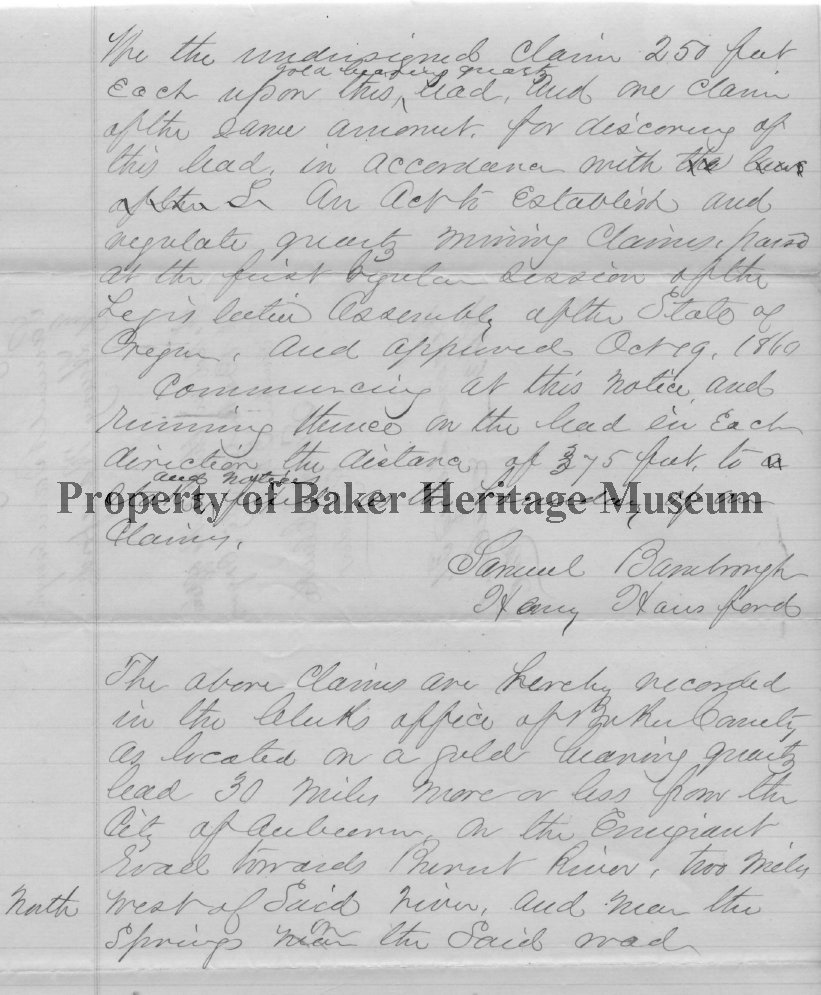 We the undersigned Claim 250 feet
gold bearing quartz
Each upon this, lead, and one claim
of the same amount, for discovery of
this lead, in accordance with the laws
of the An Act to Establish and
regulate quartz mining Claims, passed
at the first regular session of the
Legislative Assembly of the State of
Oregon, and approved Oct 19, 1860
Commencing at this notice and
running thence on the lead in Each
direction the distance of 375 feet, to a
and notice
Property of Baker Heritage Museum
Claims.
Samuel Bambrough
Henry Hansford
The above Claims are hereby recorded
in the Clerks office of Baker County
as located on a gold bearing quartz
lead 30 miles more or less from the
City of Auburn, on the Emigrant
Road towards Burnt River, two miles
North west of Said river, and near the
Springs near on the Said road